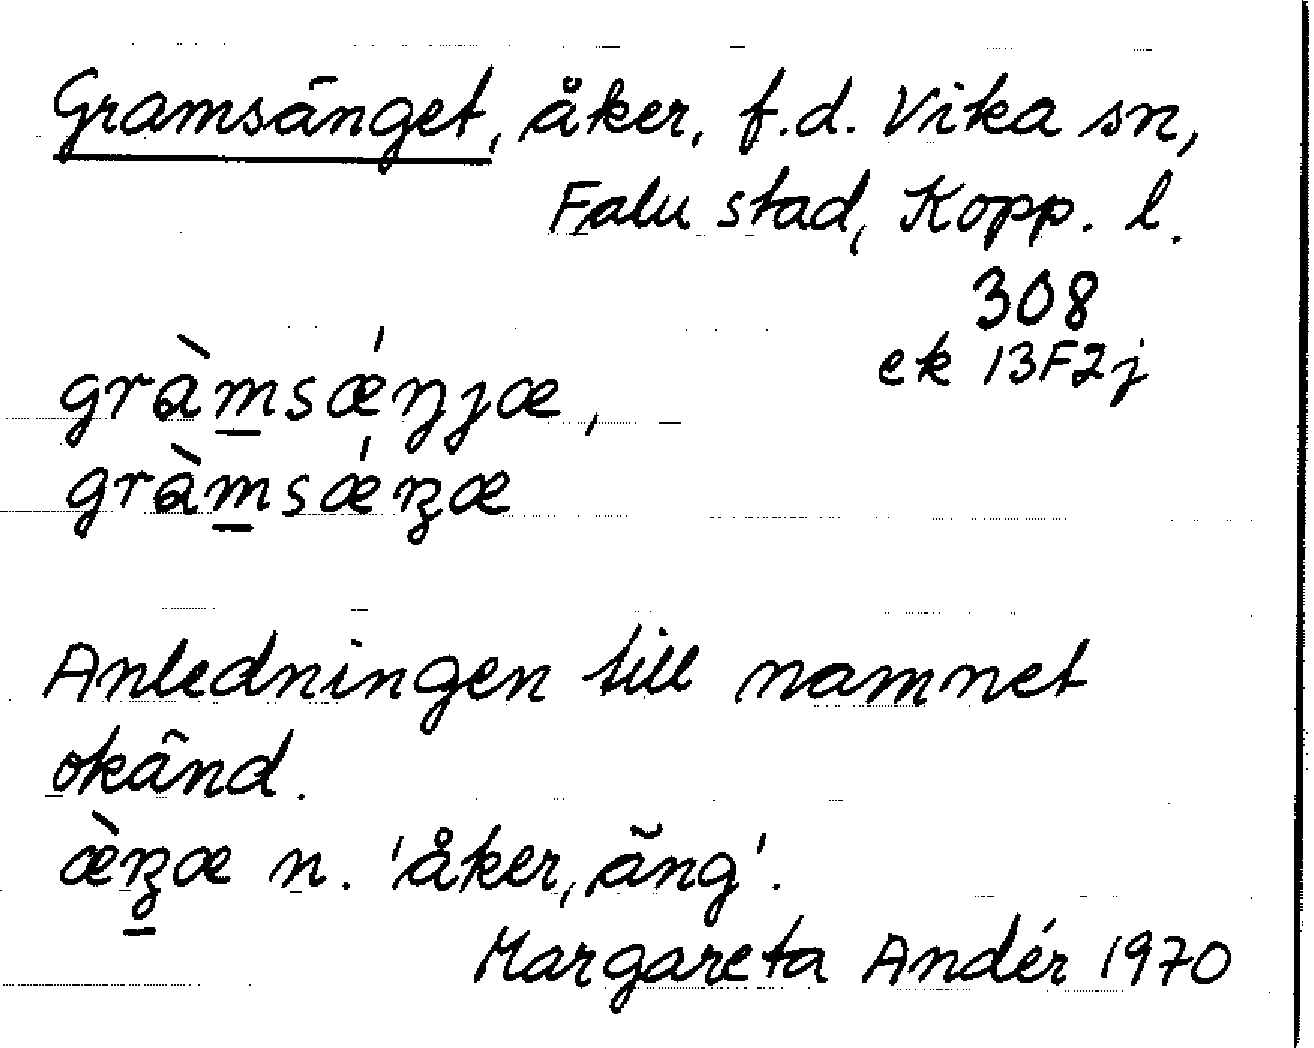 Gramsänget, åker, f.d. Vika sn,
Falu stad, Kopp. l.
308
ek 13F2j
gràm̲sǽŋjæ,
gràm̲sǽȵæ
Anledningen till namnet
okänd.
æ̀ȵ̲æ n. 'åker, äng'.
Margareta Andér 1970